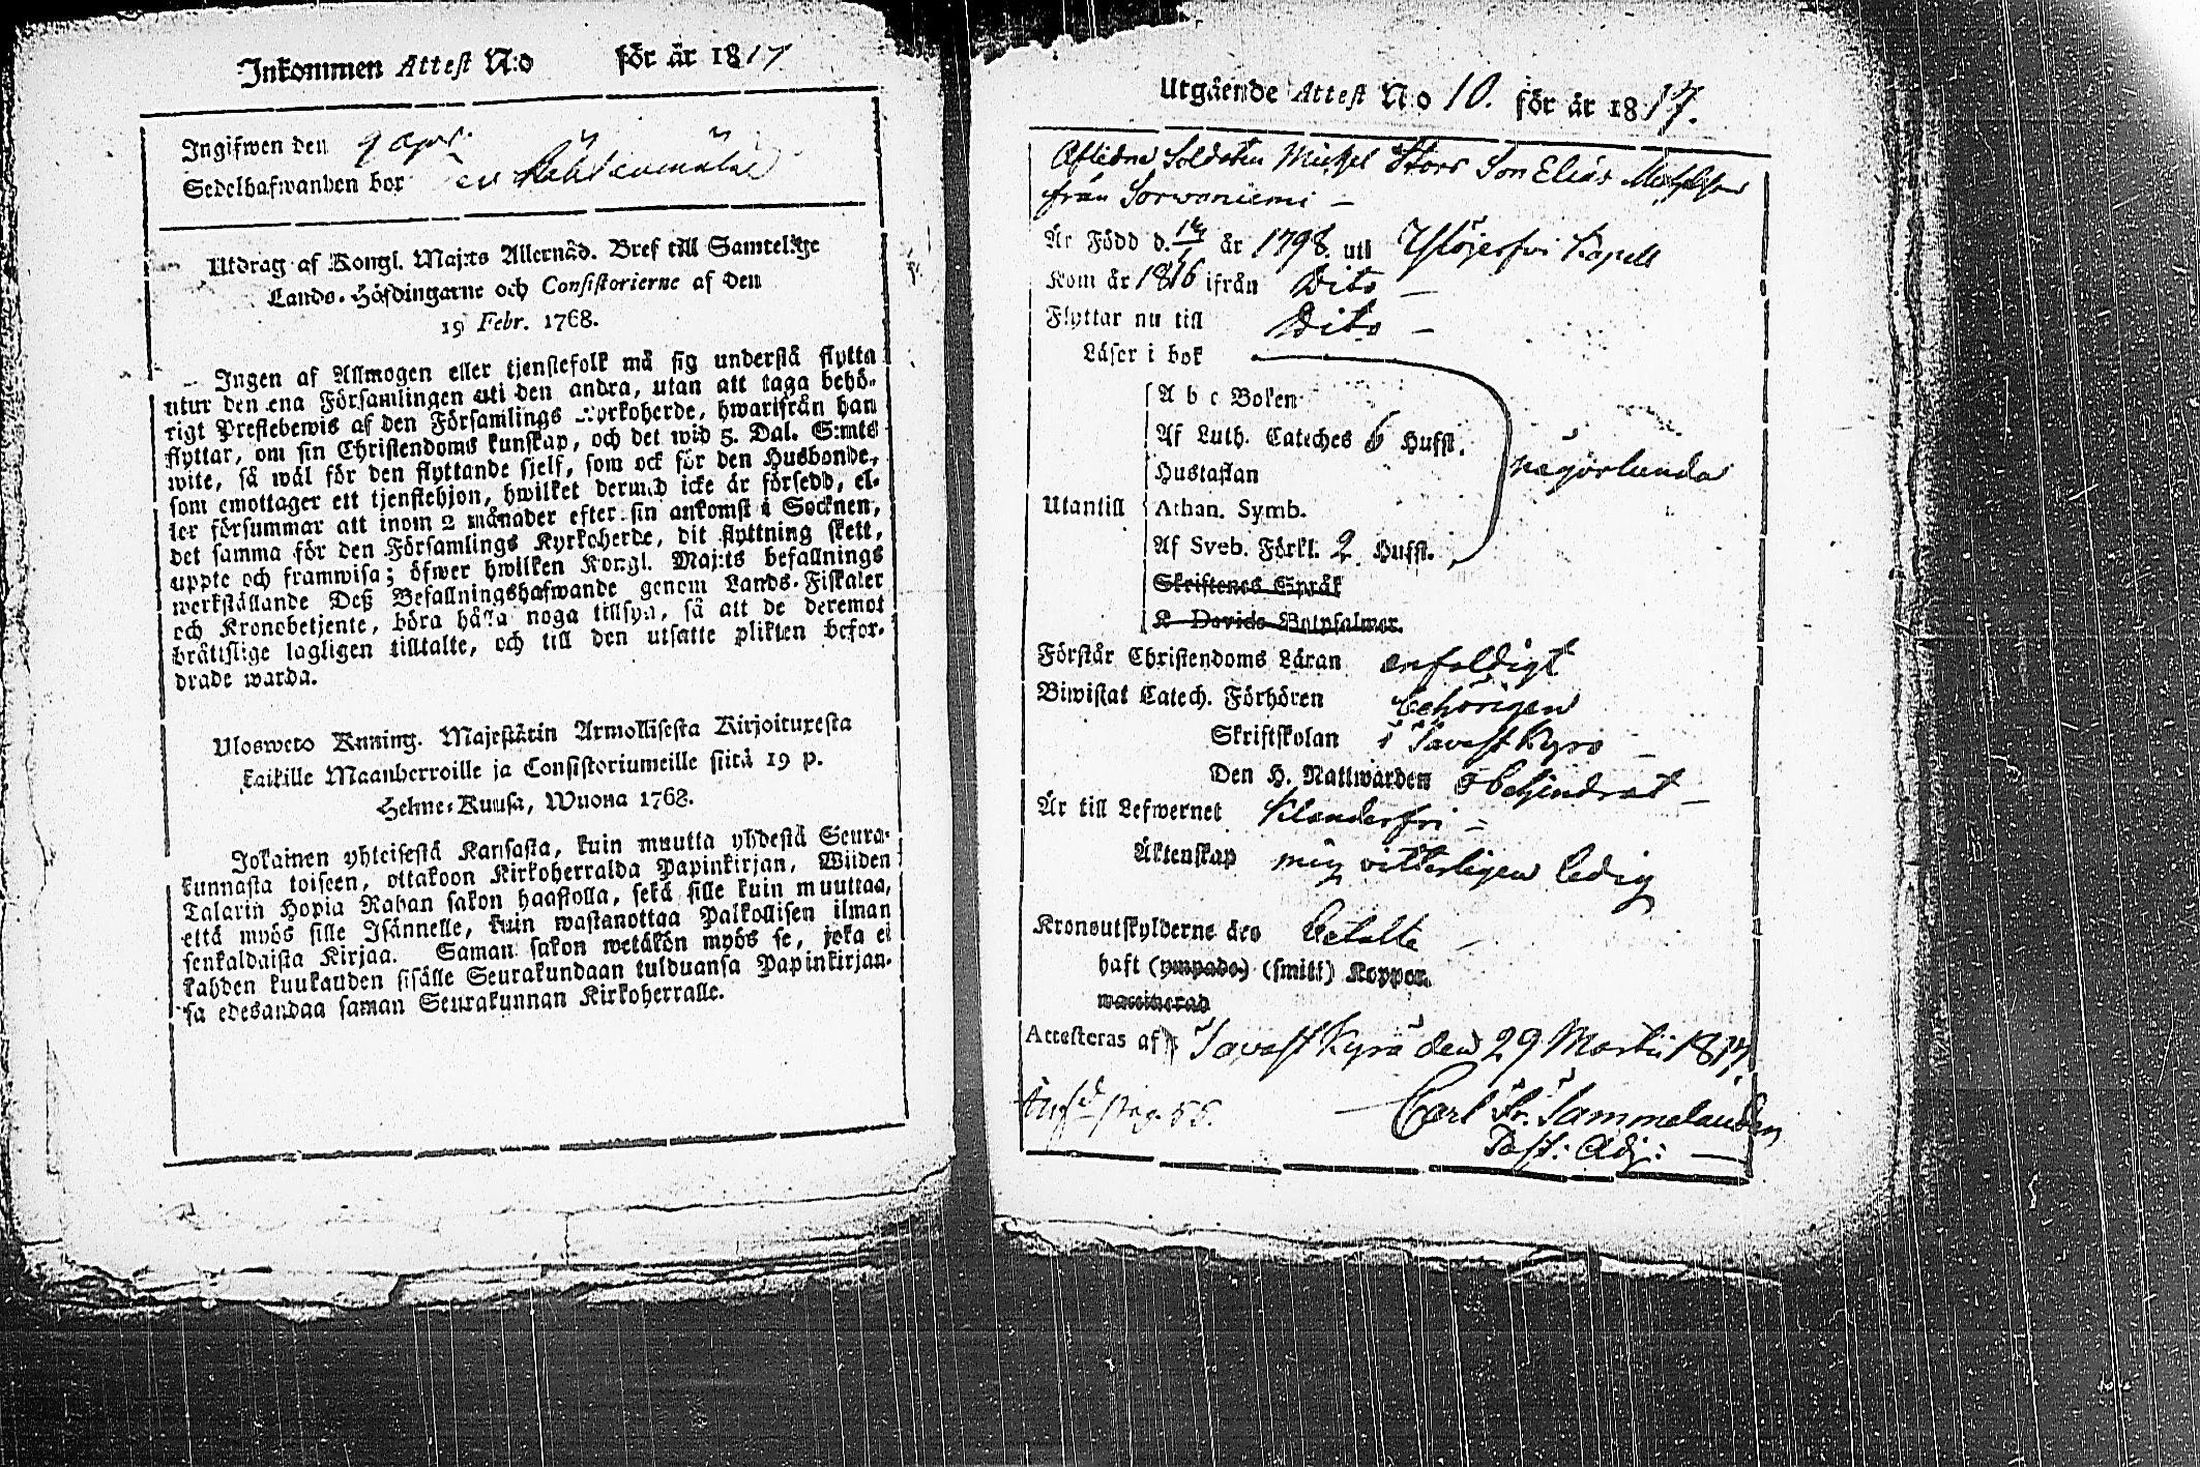 Inkommen Attest N:o för år 1817
Ingifwen den 9 apr.
Sedelhafwanden bor
Utdrag af Kongl. Maj:ts Allernåd. Bref till Samtelige
Lands-Höfdingarne och Consistorierne af den
19 Febr. 1768.
Ingen af Allmogen eller tjenstefolk må sig understå flytta
utur den ena Församlingen uti den andra, utan att taga behö-
rigt Prestebewis af den Församlings Kyrkoherde, hwarifrån han
flyttar, om sin Christendoms kunskap, och det wid 5. Dal. S:mts
wite, så wäl för den flyttande sjelf, som ock för den Husbonde,
som emottager ett tjenstehjon, hwilket dermed icke är försedd, el-
ler försummar att inom 2 månader efter sin ankomst i Socknen,
det samma för den Församlings Kyrkoherde, dit flyttning skett,
uppte och framwisa; öfwer hwilken Kongl. Maj:ts befallnings
werkställande Deß Befallningshafwande genom Lands-Fiskaler
och Kronobetjente, böra hålla noga tillsyn, så att de deremot
bråttslige lagligen tilltalte, och till den utsatte plikten befor-
drade warda.
Ulosweto Kuning. Majestätin Armollisesta Kirjoituxesta
kaikille Maanherroille ja Consistoriumeille siitä 19 p.
Helme-Kuusa, Wuona 1768.
Jokainen yhteisestä Kansasta, kuin muutta yhdestä Seura-
kunnasta toiseen, ottakoon Kirkoherralda Papinkirjan, Wiiden
Talarin Hopia Rahan sakon haastolla, sekä sille kuin muuttaa,
että myös sille Isännelle, kuin wastanottaa Palkollisen ilman
senkaldaista Kirjaa. Saman sakon wetäkön myös se, joka ei
kahden kuukauden sisälle Seurakundaan tulduansa Papinkirjan-
sa edesandaa saman Seurakunnan Kirkoherralle.
Utgående Attest N:o 10. för år 1817.
Afledne Soldaten Michel Stors Son Elias Michelsson
från Sorwaniemi –
Är Född d. år 1798. uti Ylöjerfvi Kapell
Kom år 1816 ifrån Dito –
Flyttar nu till Dito –
Läser i bok
A b c Boken
Af Luth. Cateches 6 Hufst.
Hustaflan
någorlunda
Utantill Athan. Symb.
Af Sveb. Förkl. 2 Hufst.
Skriftenes Språk
K Davids Botpsalmer.
Förstår Christendoms Läran enfaldigt
Biwistat Catech. Förhören behörigen
Skriftskolan i Tavast Kyro –
Den H. Nattwarden obehindrat –
Är till Lefwernet Klanderfri –
Äktenskap mig vitterligen ledig
Kronoutskylderne äro betalte –
haft (ympade) (smitt) Koppor.
waccinerad
Attesteras af Tavast Kyro den 29 Martii 1817.
pag. 55.
Carl Fr. Sammelanden
Past: Adj: –